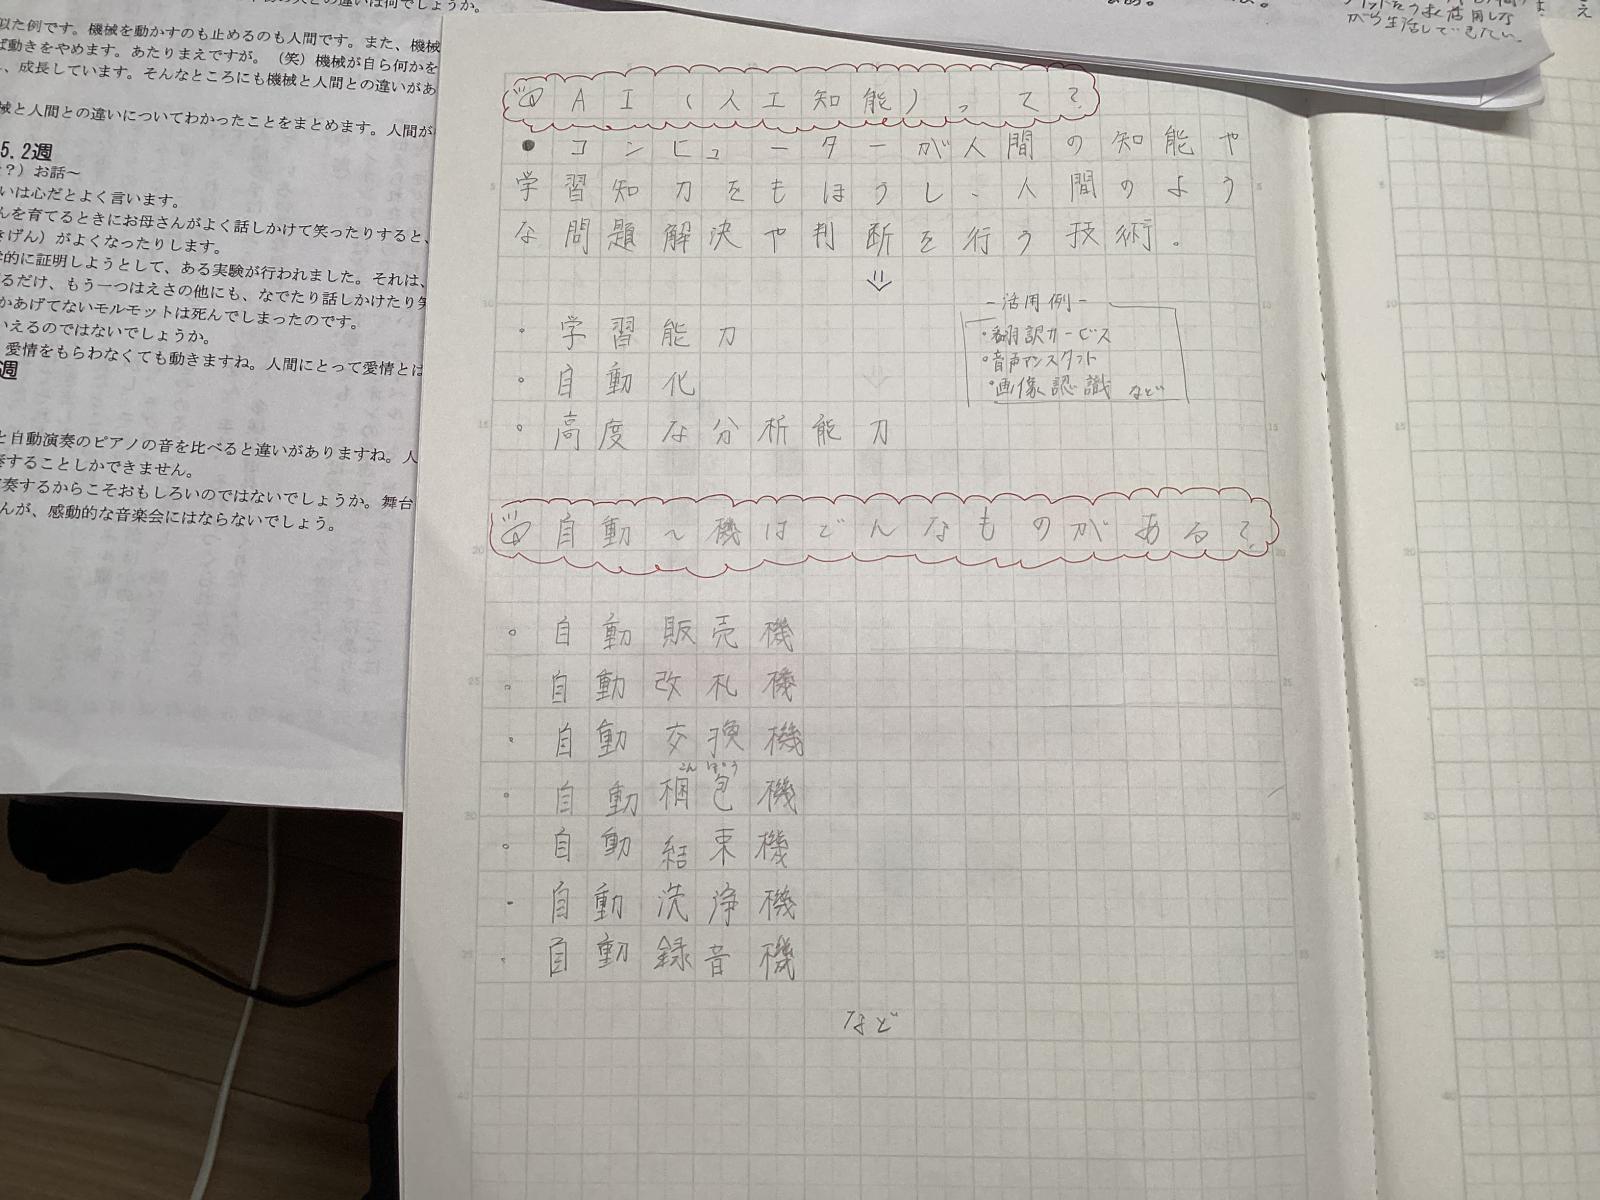 の違いは何でしょうか。
似た例です。機械を動かすのも止めるのも人間です。また、機械
ば動きをやめます。あたりまえですが。（笑）機械が自ら何かを
、成長しています。そんなところにも機械と人間との違いがあ
械と人間との違いについてわかったことをまとめます。人間が
5.2週
？）お話〜
いは心だとよく言います。
んを育てるときにお母さんがよく話しかけて笑ったりすると、
きげん）がよくなったりします。
学的に証明しようとして、ある実験が行われました。それは、
るだけ、もう一つはえさの他にも、なでたり話しかけたり笑
かあげてないモルモットは死んでしまったのです。
いえるのではないでしょうか。
愛情をもらわなくても動きますね。人間にとって愛情とは
週
と自動演奏のピアノの音を比べると違いがありますね。人
奏することしかできません。
演奏するからこそおもしろいのではないでしょうか。舞台
んが、感動的な音楽会にはならないでしょう。
うまく活用しな
がら生活して
え
Q AI（人工知能）って？
●コンピューターが人間の知能や
学習知力をもほうし、人間のよう
な問題解決や判断を行う技術。
⇓
・学習能力
・自動化
・高度な分析能力
－活用例－
・翻訳サービス
・音声アシスタント
・画像認識 など
Q 自動〜機はどんなものがある？
・自動販売機
・自動改札機
・自動交換機
こんぽう
・自動梱包機
・自動結束機
・自動洗浄機
・自動録音機
など